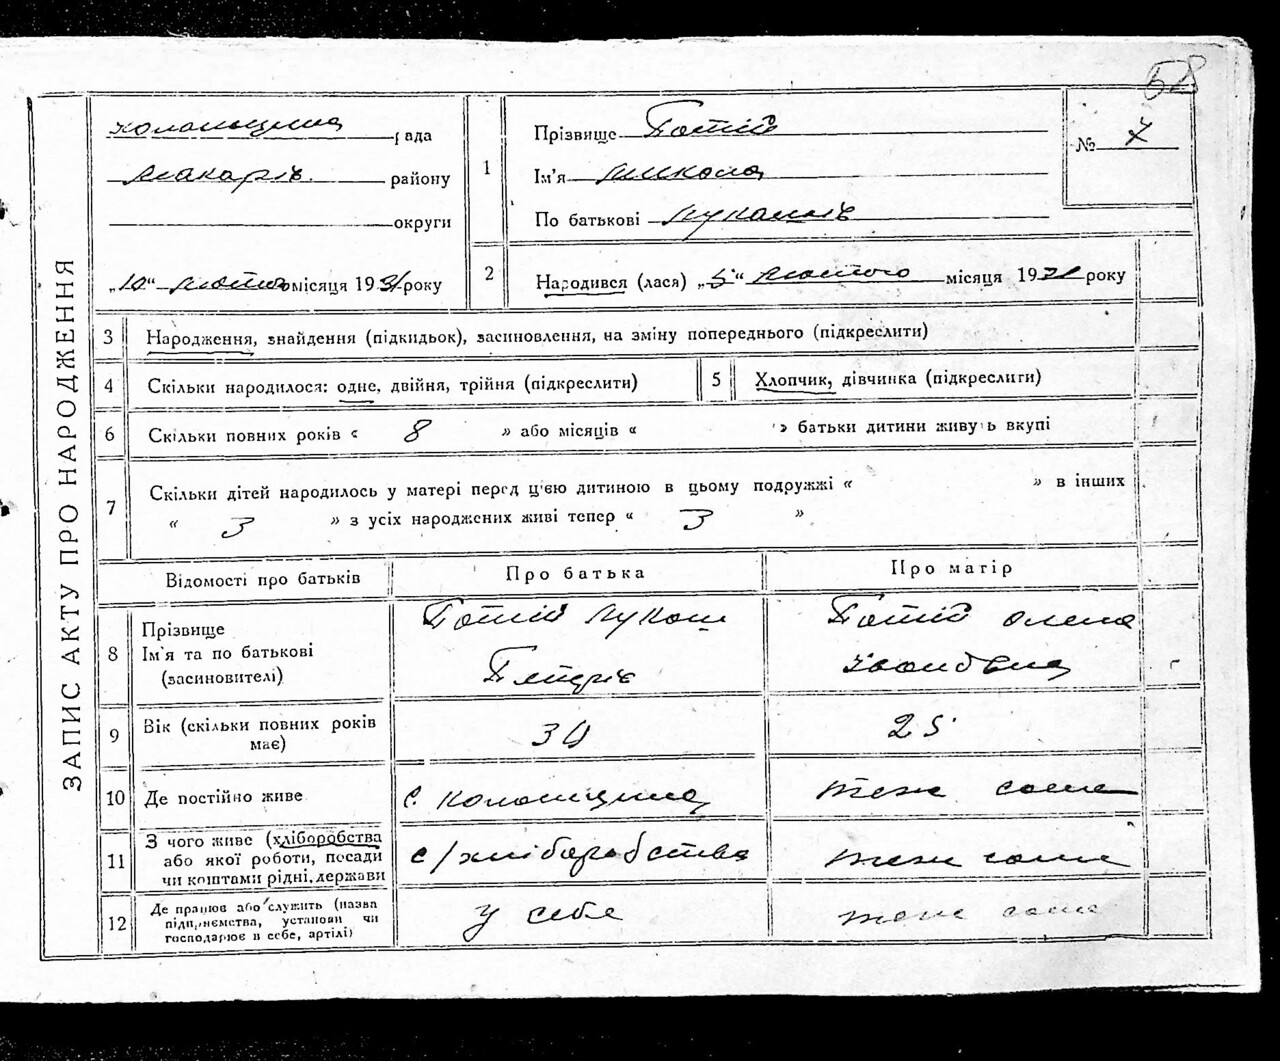 58
ЗАПИС АКТУ ПРО НАРОДЖЕННЯ
Колонщина рада
Макарів району
округи
„10“ лютого місяця 1931 року
1
Прізвище Потій
Ім'я Микола
По батькові Лукашів
№ 7
2
Народився (лася) „5“ лютого місяця 1931 року
3 Народження, знайдення (підкидьок), засиновлення, на зміну попереднього (підкреслити)
4 Скільки народилося: одне, двійня, трійня (підкреслити)
5 Хлопчик, дівчинка (підкреслиги)
6 Скільки повних років « 8 » або місяців « » батьки дитини живуть вкупі
7 Скільки дітей народилось у матері перед ц'єю дитиною в цьому подружжі « » в інших
« 3 » з усіх народжених живі тепер « 3 »
Відомості про батьків Про батька Про матір
8 Прізвище
Ім'я та по батькові
(засиновителі)
Потій Лукаш
Петрів
Потій Олена
Івановна
9 Вік (скільки повних років
має)
30
25
10 Де постійно живе с. Колонщина теж саме
11 З чого живе (хліборобства
або якої роботи, посади
чи коштами рідні, держави
с/хліборобства
теж саме
12 Де працює або служить (назва
підприємства, установи чи
господарює в себе, артілі)
у себе
теж саме